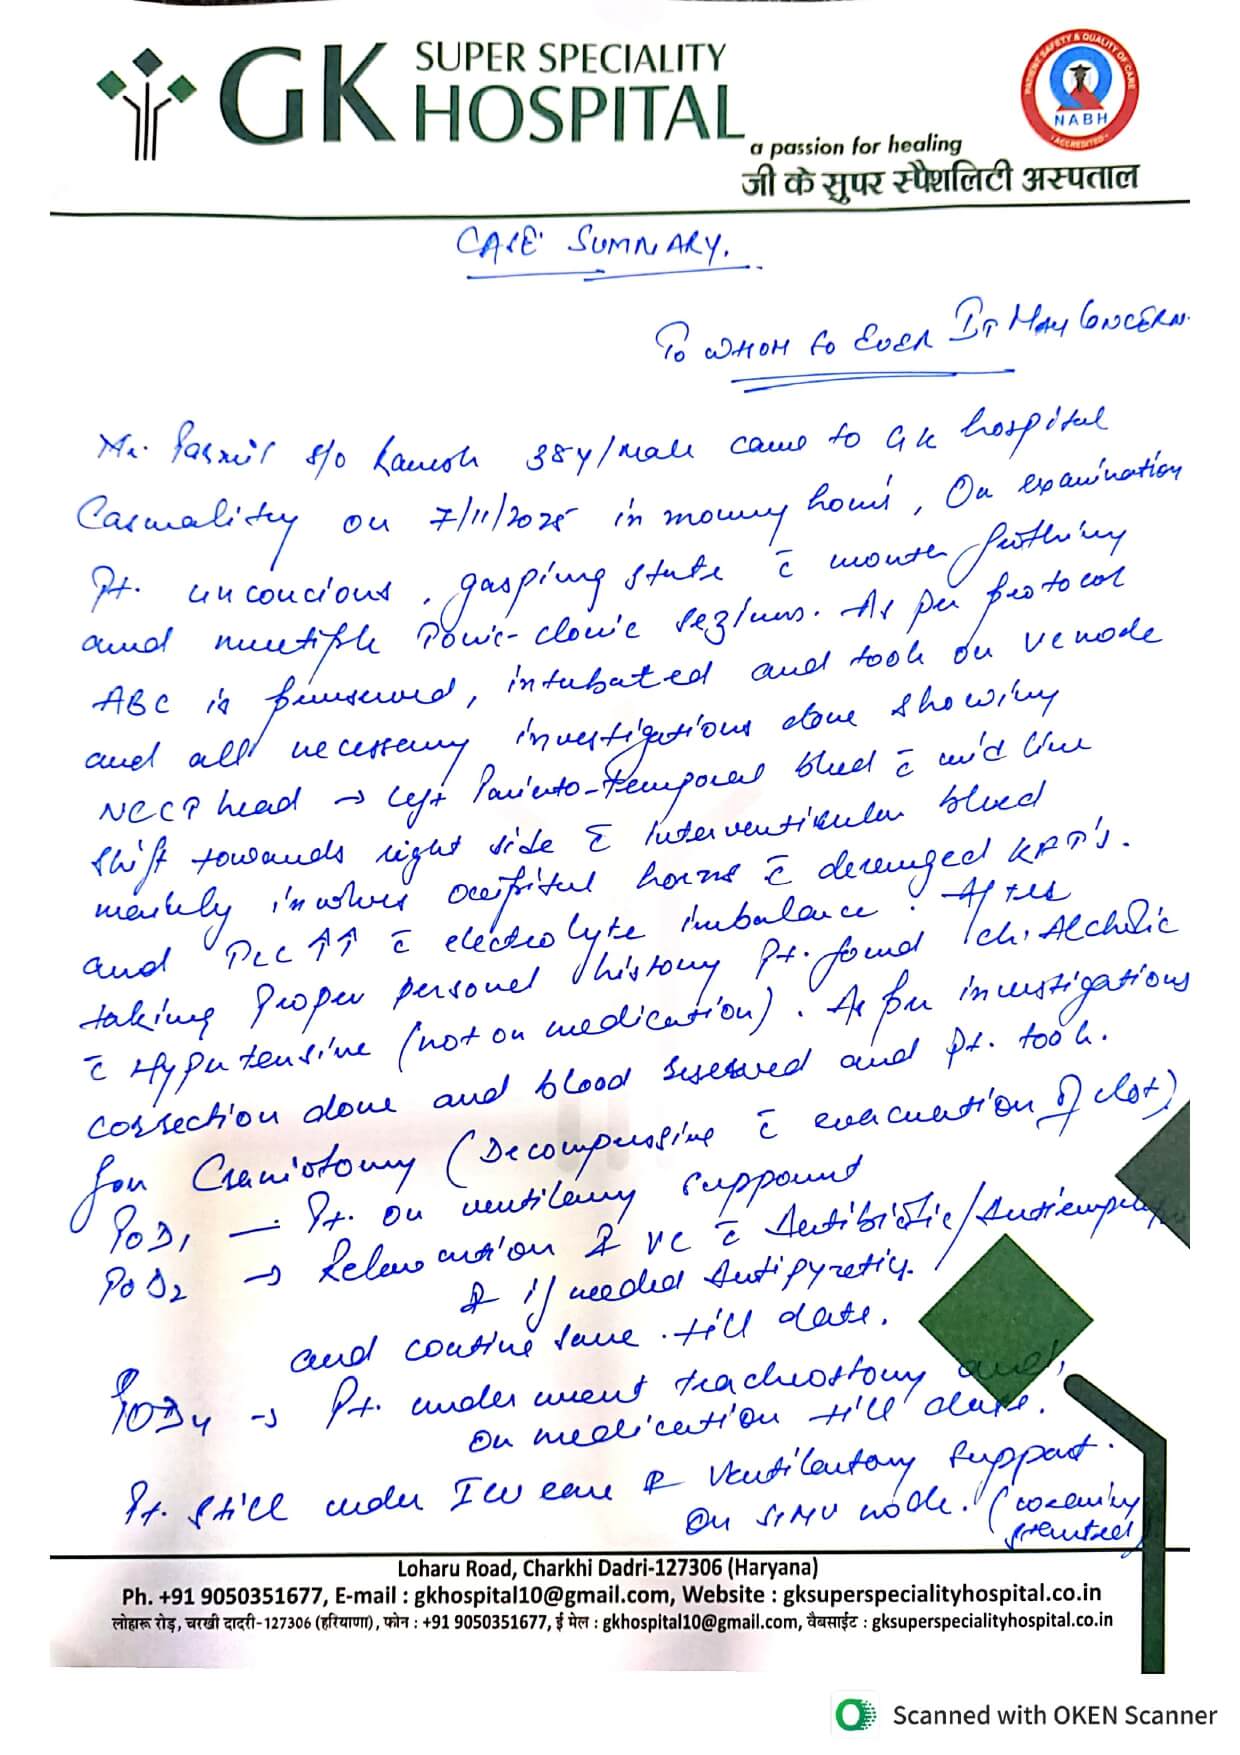 GK SUPER SPECIALITY
HOSPITAL
a passion for healing
जी के सुपर स्पैशलिटी अस्पताल
PATIENT SAFETY & QUALITY OF CARE
NABH
ACCREDITED
CASE SUMMARY.
To WHOM So EVER IT MAY CONCERN.
Mr. s/o Ramesh 38y/Male came to GK hospital
Casmality on 7/11/2025 in hours, On examination
Pt. unconcious, gasping state c̄ mouth frothing
and multiple Tonic-clonic. As per protocol
ABC is, intubated and took on V mode
and all necessary investigations done showing
NCCT head → left Parieto-temporal bleed c̄ mid line
shift towards right side c̄ interventricular bleed
mainly involves occipital horns c̄ deranged KFT's.
and TLC ↑↑ c̄ electrolyte imbalance. After
taking Proper personel history Pt. found ch. Alcholic
c̄ Hypertensive (not on medication). As per investigations
correction done and blood reserved and Pt. took.
for Craniotomy (Decompressive c̄ evacuation of clot)
POD1 — Pt. on support
POD2 → c̄ Antibiotic/
& if needed Antipyretic.
and same till date.
POD4 → Pt. under went tracheostomy and
on medication till date.
Pt. still under ICU care & Ventilatory support.
On SIMV mode. (weaning
started)
Loharu Road, Charkhi Dadri-127306 (Haryana)
Ph. +91 9050351677, E-mail : gkhospital10@gmail.com, Website : gksuperspecialityhospital.co.in
लोहारू रोड़, चरखी दादरी-127306 (हरियाणा), फोन : +91 9050351677, ई मेल : gkhospital10@gmail.com, वैबसाईट : gksuperspecialityhospital.co.in
Scanned with OKEN Scanner